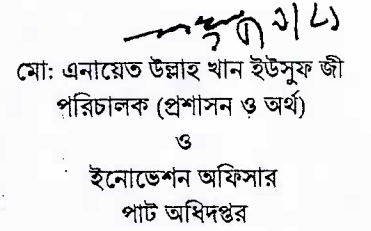 মো: এনায়েত উল্লাহ খান ইউসুফ জী
পরিচালক (প্রশাসন ও অর্থ)
ও
ইনোভেশন অফিসার
পাট অধিদপ্তর